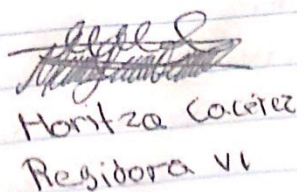 Horitza Cacérez
Regidora VI